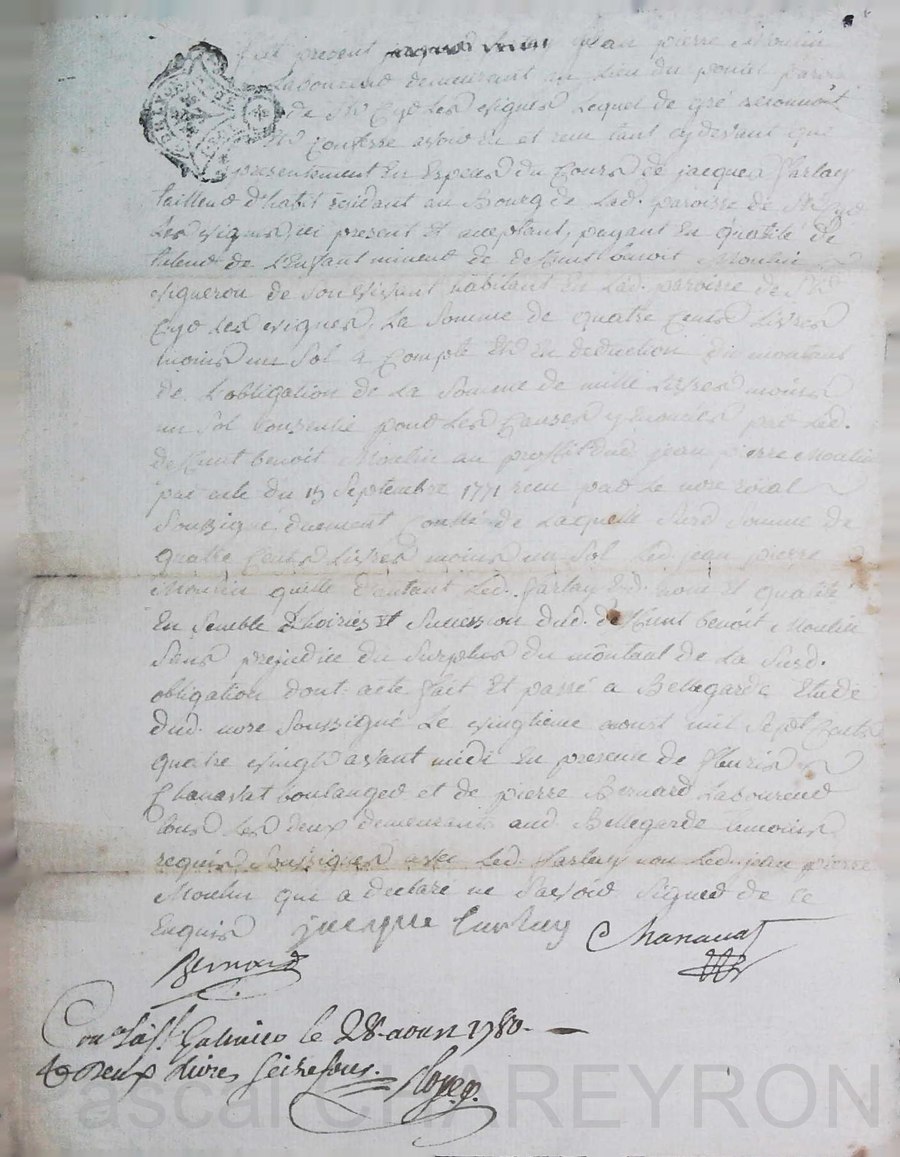 fut present Jean pierre Moulin
Laboureur demeurant au lieu du poniet paroisse
de St Cyr Les vignes Lequel de gré reconnoit
et Confesse avoir eu et reçu tant cydevant que
presentement en Especes du Cours de jacques
tailleur d'habit residant au Bourg de Lad. paroisse de St Cyr
Les vignes, ici present et aceptant, payant en qualité de
tuteur de L'Enfant mineur de deffunt benoit Moulin
vigneron de son vivant habitant en Lad. paroisse de St
Cyr Les vignes, La Somme de quatre Cents Livres
moins un Sol a Compte et en deduction du montant
de L'obligation de La Somme de mille Livres moins
un Sol consentie pour Les Causes y enoncées par Led.
deffunt benoit Moulin au proffit dud. jean pierre Moulin
par acte du 15 Septembre 1771 reçu par Le nore roial
Soussigné duement Conllé de Laquelle Susd Somme de
quatre Cents Livres moins un Sol Led. jean pierre
Moulin quitte d'autant Led. esd. nom et qualité
En semble L'hoirie et Succession dud. deffunt benoit Moulin
Sans prejudice du Surplus du montant de La Susd.
obligation dont acte fait et passé a Bellegarde Etude
dud. nore Soussigné Le vingtieme aoust mil Sept Cents
quatre vingt avant midi En presence de fleuris
Chanavat boulanger et de pierre Bernard Laboureur
tous Les deux demeurants aud. Bellegarde temoins
requis Soussignés avec Led. non Led. jean pierre
Moulin qui a declaré ne Savoir Signer de ce
Enquis jacque Chanavat
Bernard
le 28 aout 1780
deux Livres Seize sous.